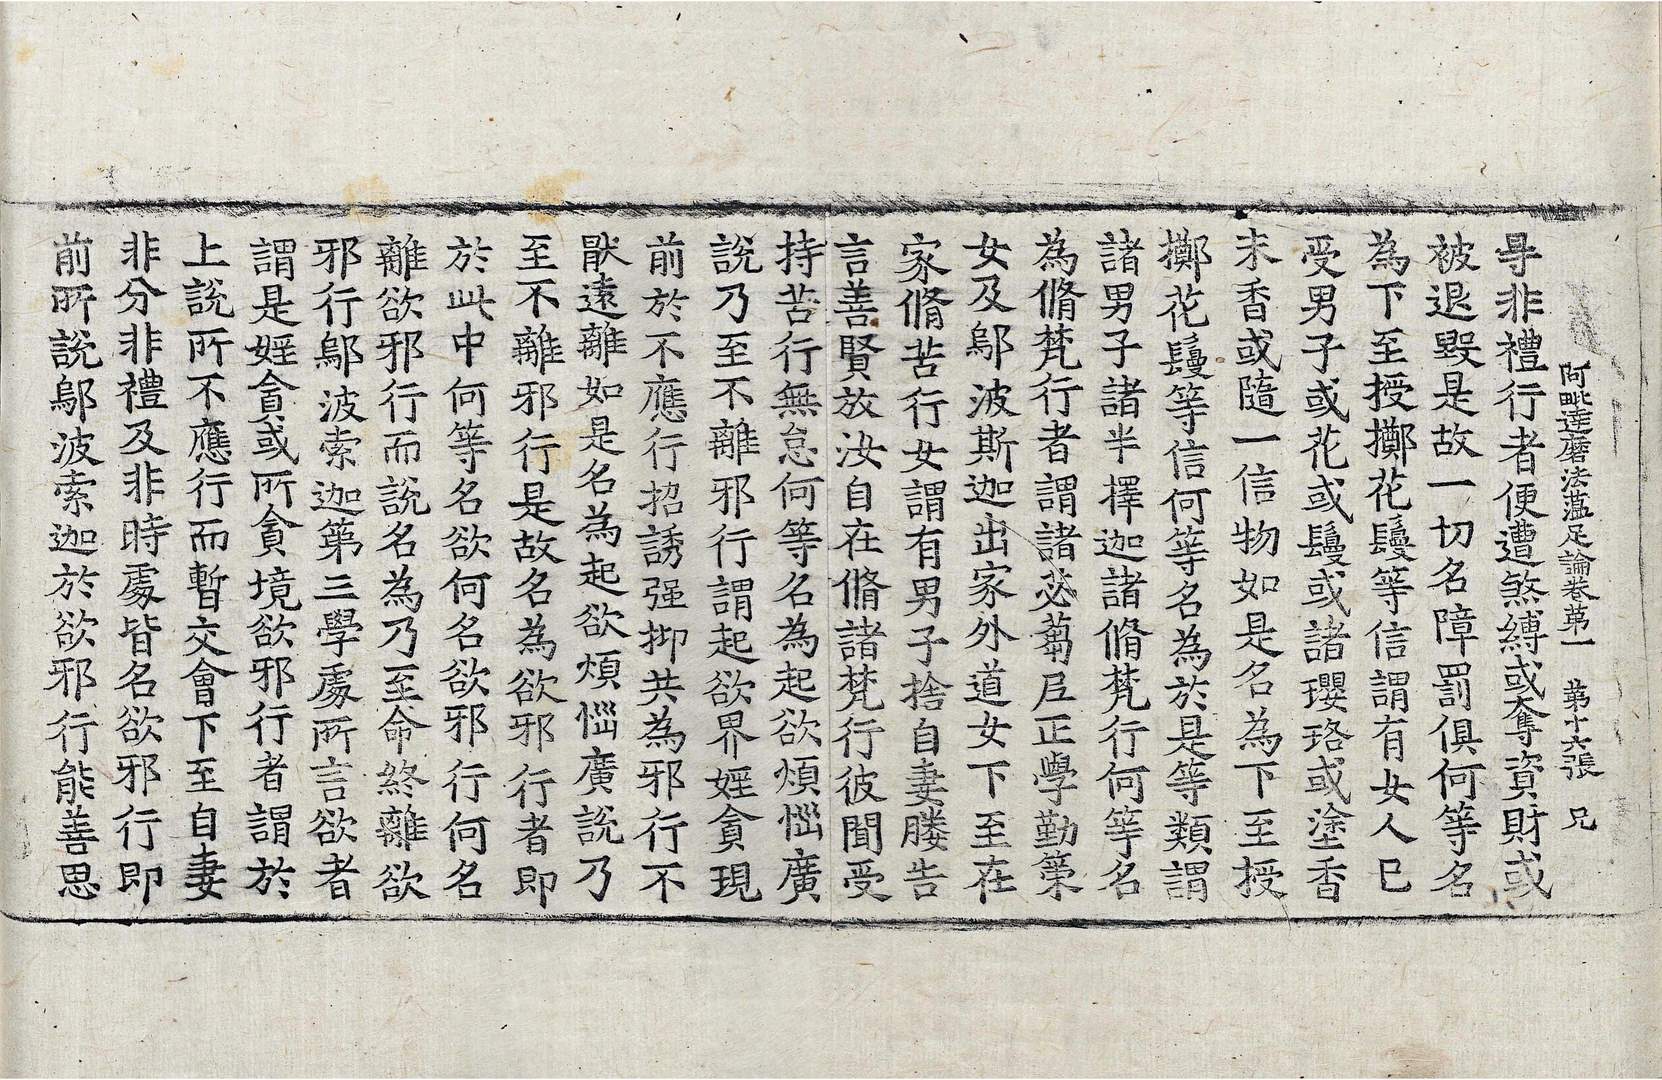 阿毗達磨法蘊足論卷第一 第十六張 兄
尋非禮行者便遭煞縛或奪資財或
被退毀是故一切名障罰俱何等名
為下至授擲花鬘等信謂有女人已
受男子或花或鬘或諸瓔珞或塗香
末香或隨一信物如是名為下至授
擲花鬘等信何等名為於是等類謂
諸男子諸半擇迦諸脩梵行何等名
為脩梵行者謂諸苾蒭尼正學勤策
女及鄔波斯迦出家外道女下至在
家脩苦行女謂有男子捨自妻媵告
言善賢放汝自在脩諸梵行彼聞受
持苦行無怠何等名為起欲煩惱廣
說乃至不離邪行謂起欲界婬貪現
前於不應行招誘强抑共為邪行不
猒遠離如是名為起欲煩惱廣說乃
至不離邪行是故名為欲邪行者即
於此中何等名欲何名欲邪行何名
離欲邪行而說名為乃至命終離欲
邪行鄔波索迦第三學處所言欲者
謂是婬貪或所貪境欲邪行者謂於
上說所不應行而暫交會下至自妻
非分非禮及非時處皆名欲邪行即
前所說鄔波索迦於欲邪行能善思